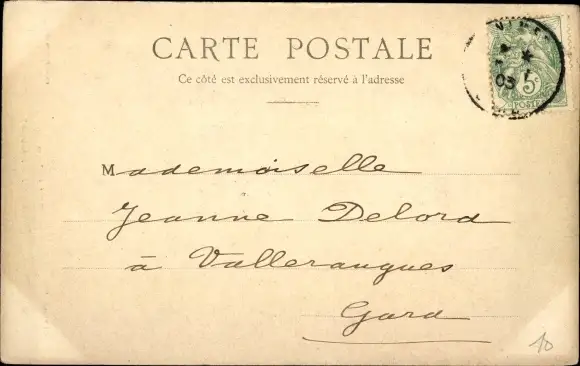 CARTE POSTALE
Ce côté est exclusivement réservé à l'adresse
Mademoiselle
Jeanne Delord
à Valleraugues
Gard
03
5c
POSTE
10